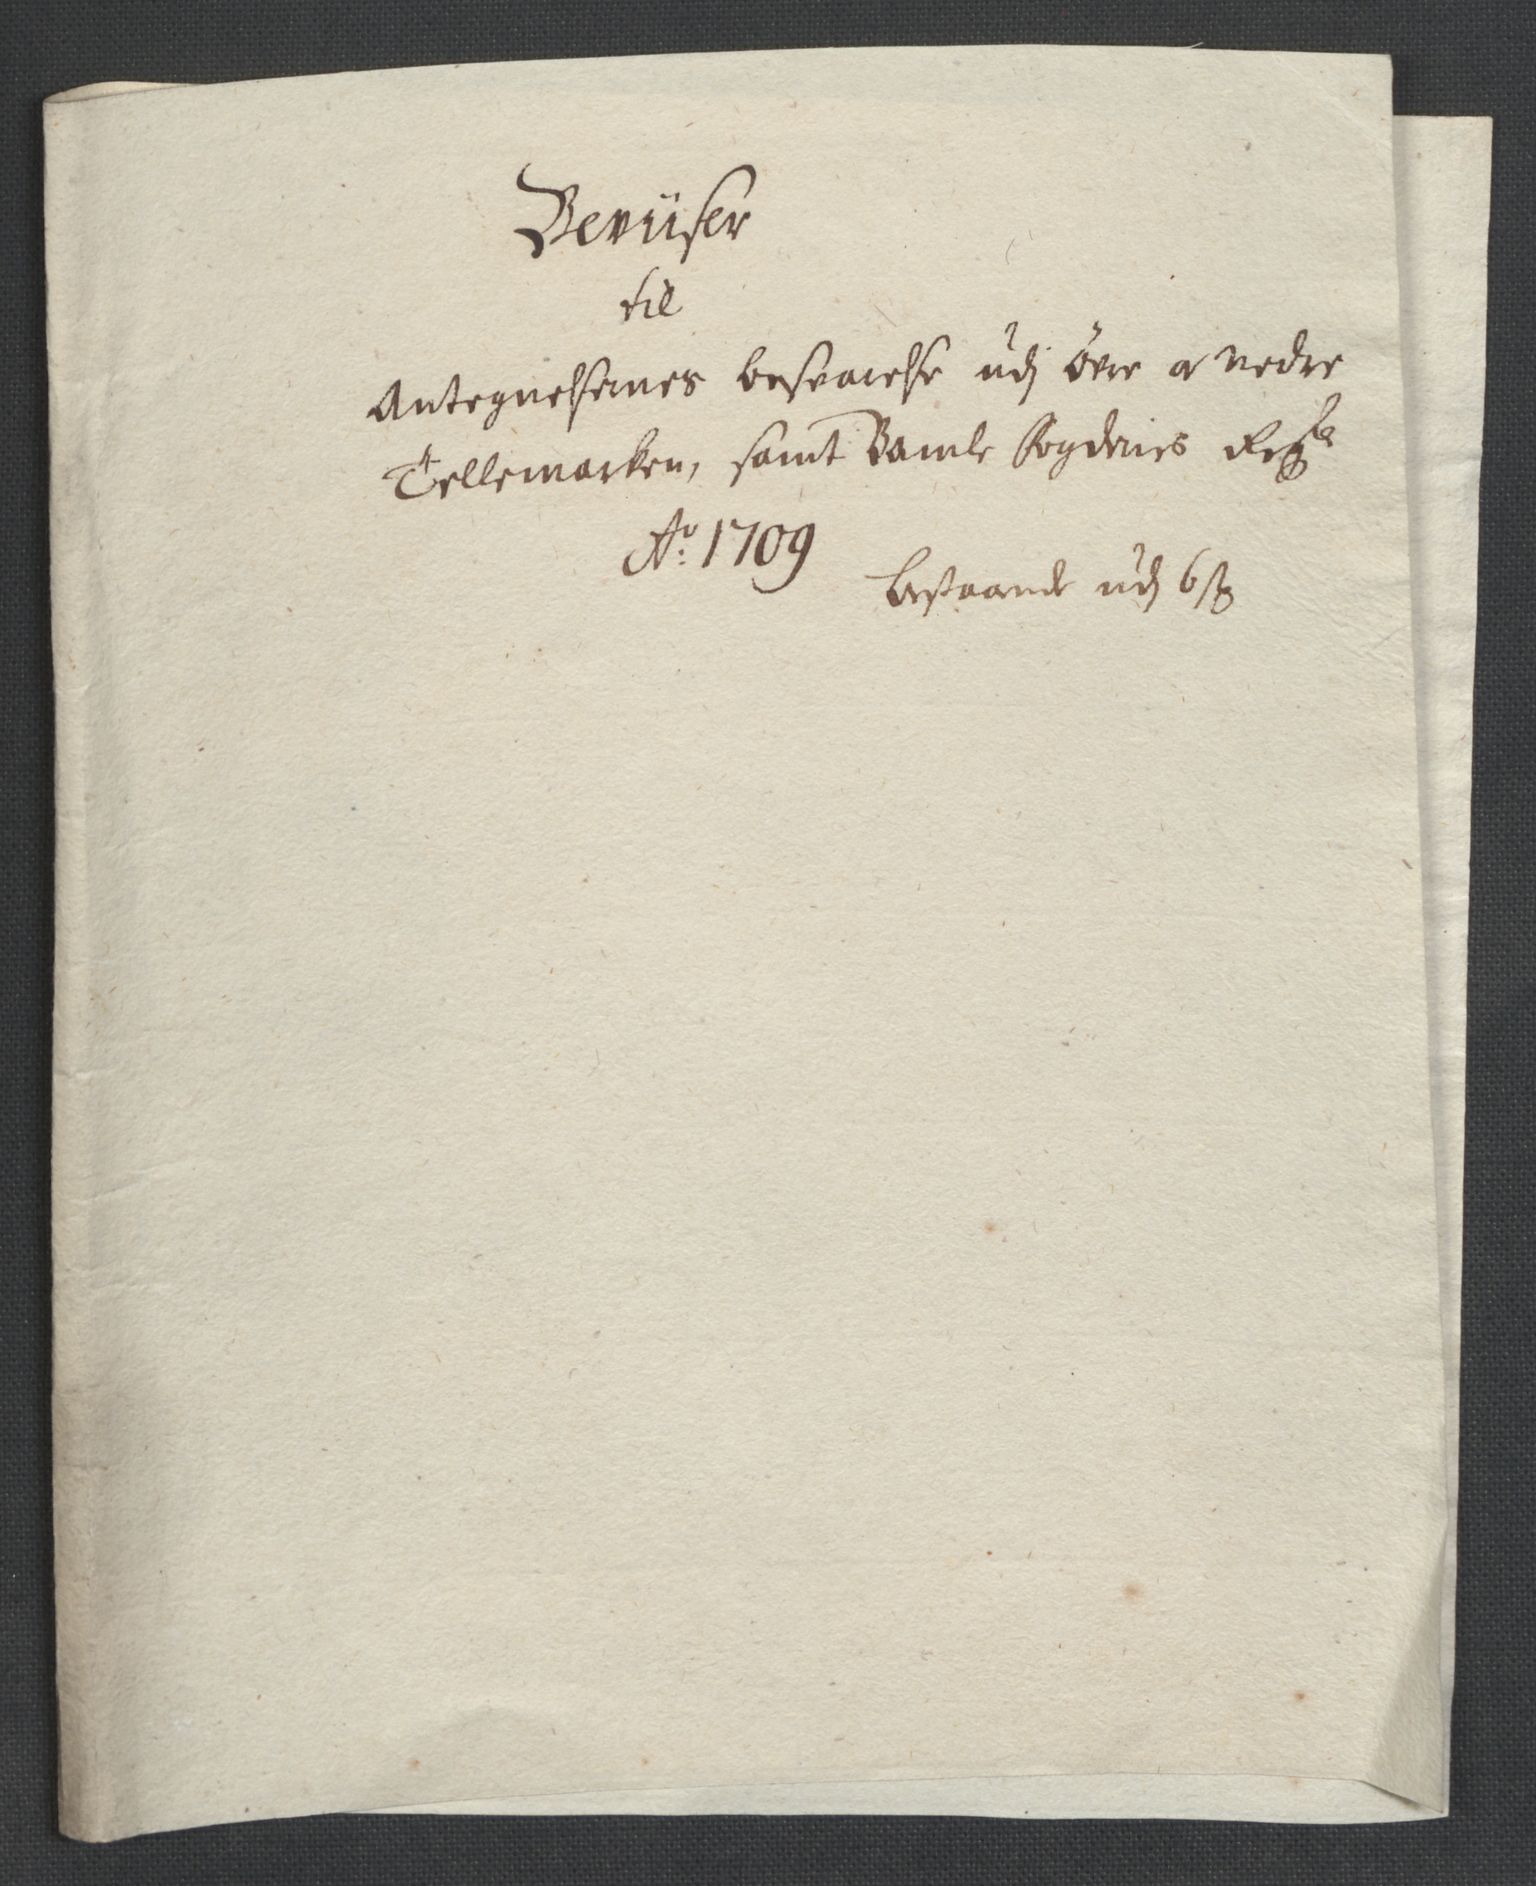 Beviiser
til
Antegnelsernes besvarelse udj Øvre og Nedre
Tellemarken, samt Bamle fogderies
Ao: 1709
bestaaende udj 6